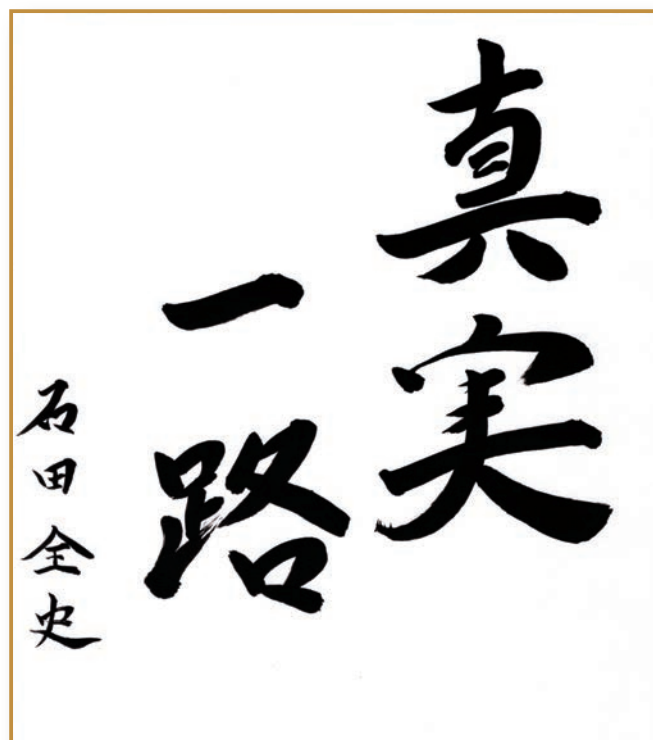 真実
一路
石田全史